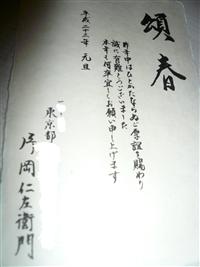 頌春
昨年中はひとかたならぬご厚誼を賜わり
誠に有難うございました
本年も何卒宜しくお願い申し上げます
平成二十三年 元旦
東京都
片岡仁左衛門